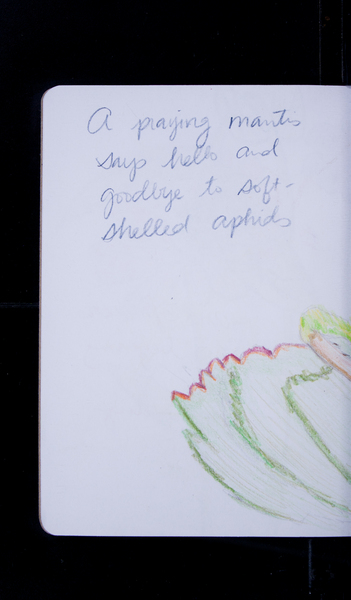 A praying mantis
says hello and
goodbye to soft-
shelled aphids